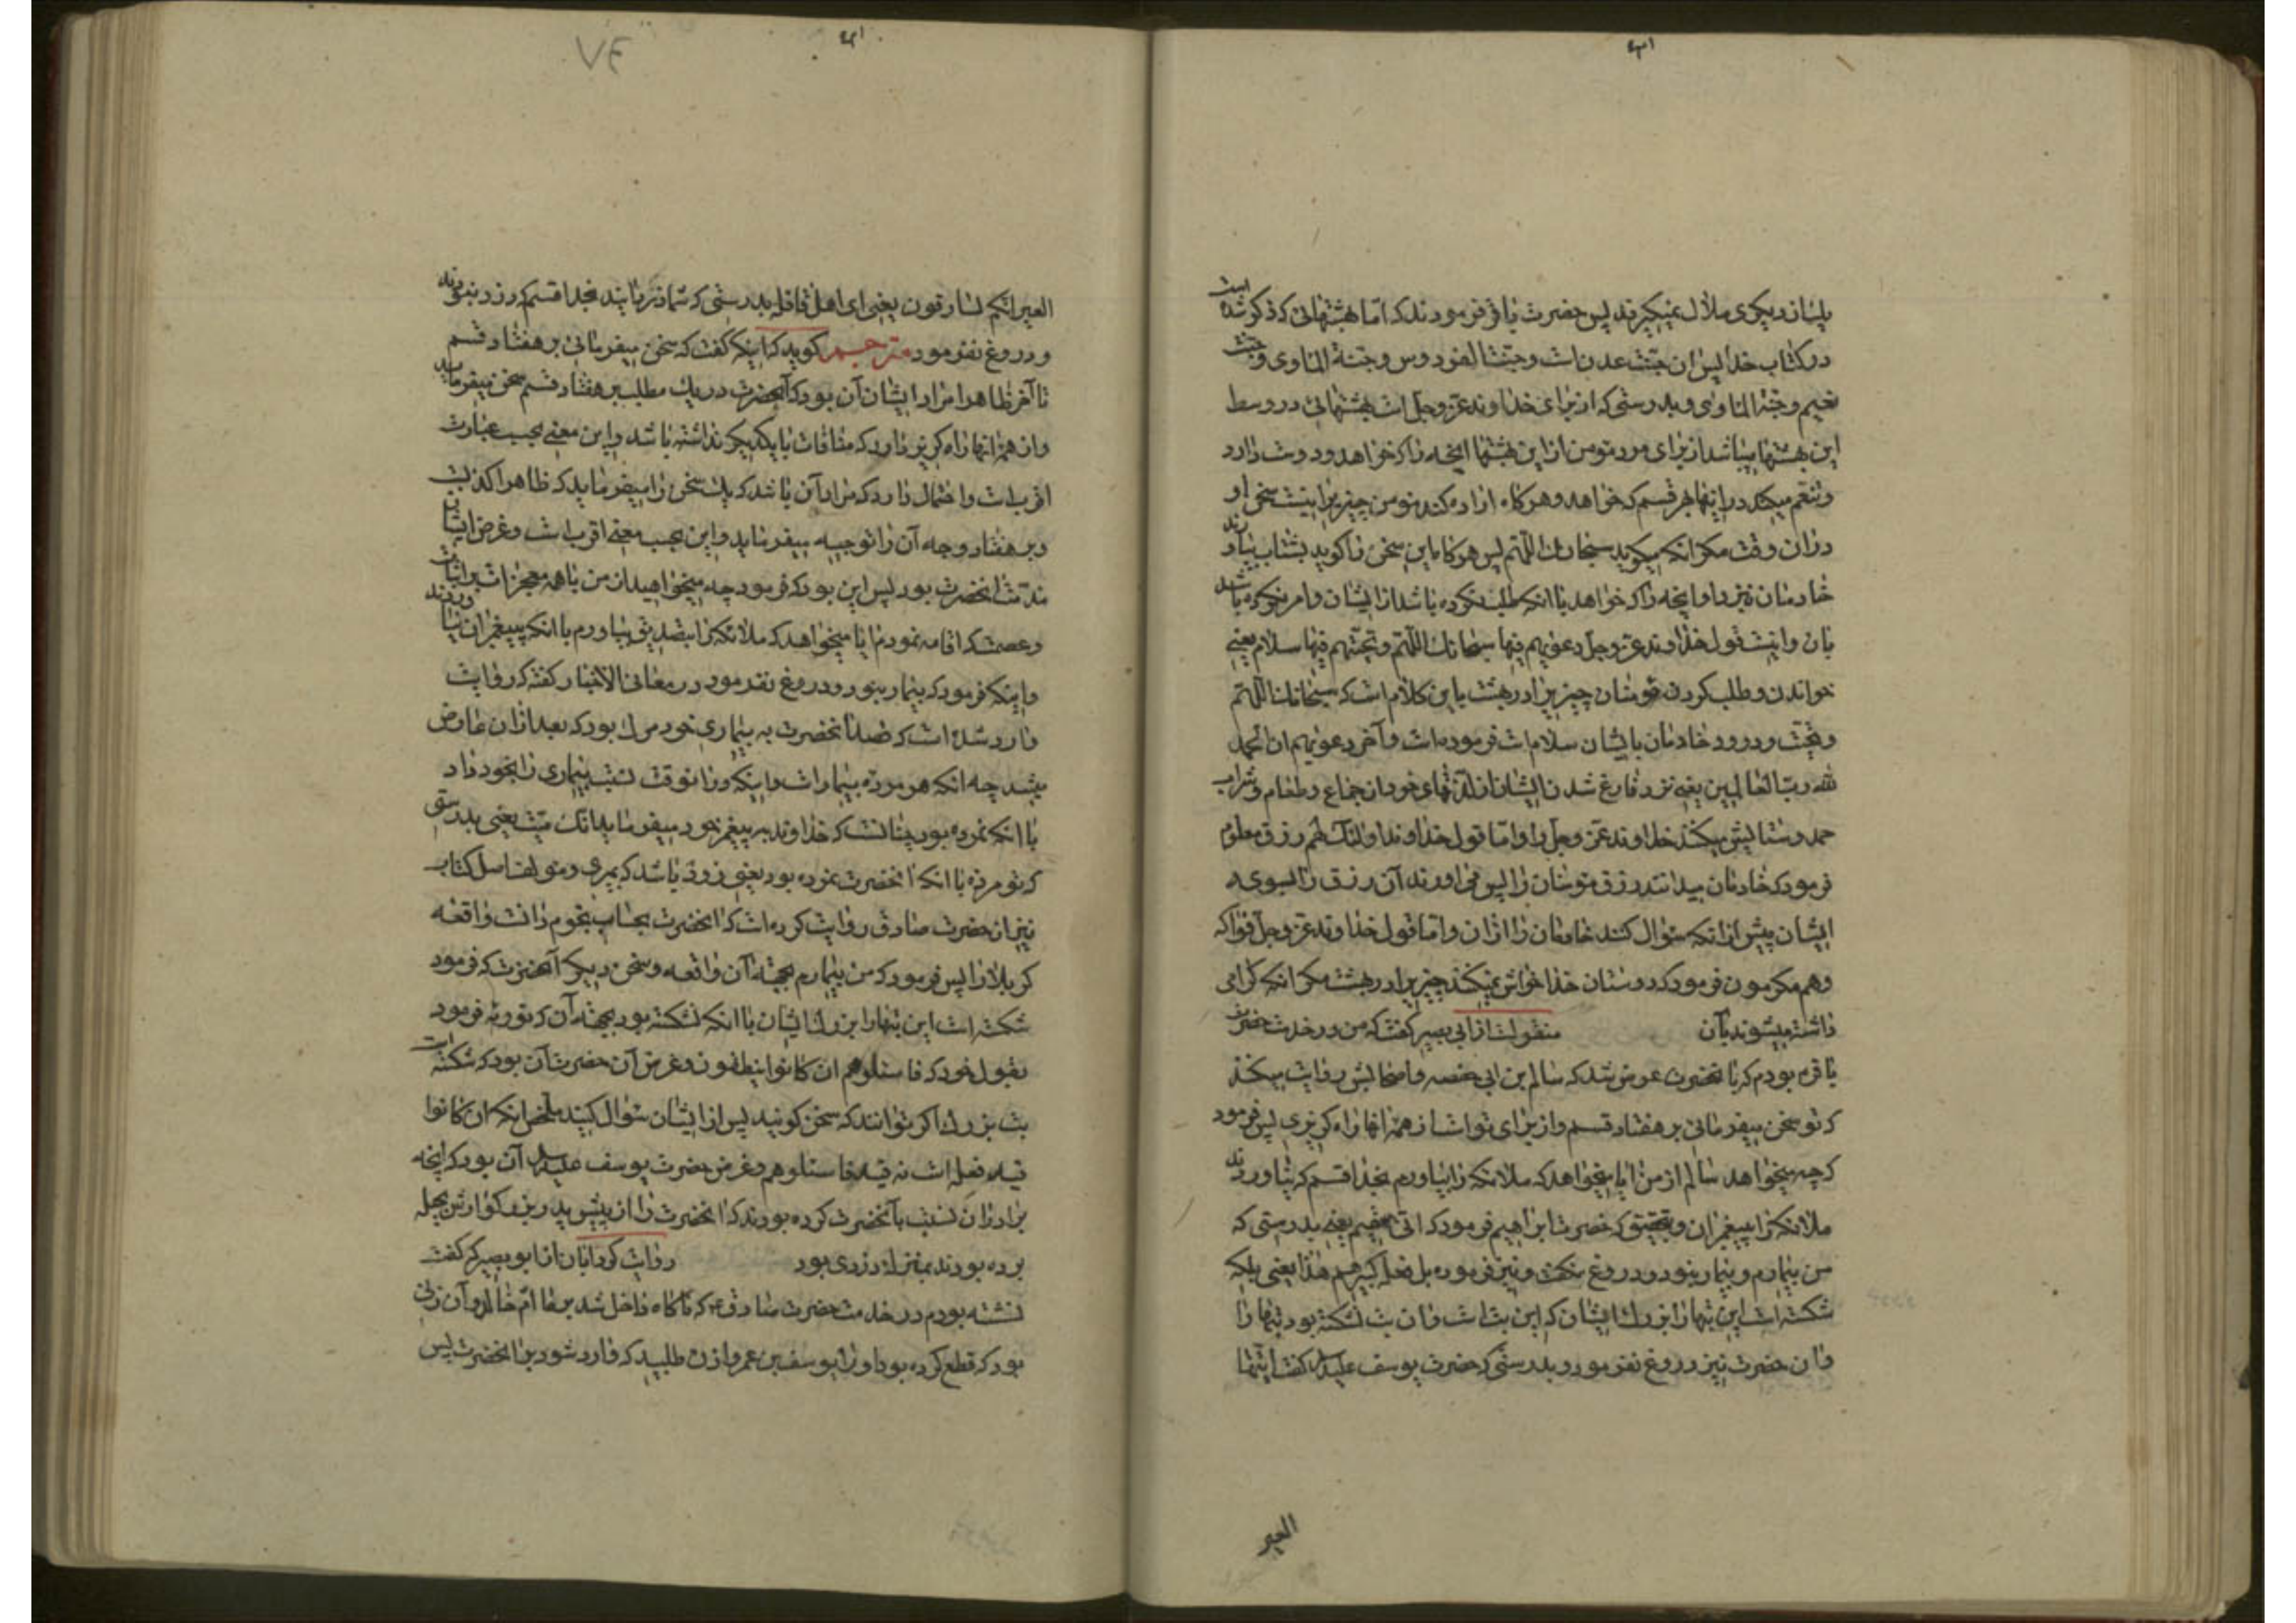 بایشان و دیگری ملال نمیگیرند پس حضرت باقر فرمودند که اما بهشتهائی که ذکر شده است
در کتاب خدا پس آن جنت عدنات و جنت الفردوس و جنة الماوی و جنت
نعیم و جنة الماوی و بدرستی که از برای خداوند عز و جل است بهشتهائی در وسط
این بهشتها میباشد از برای مرد مومن از این بهشتها آنچه را که خواهد و دوست دارد
و تنعم میکند در اینها هر قسم که خواهد و هر کاه اراده کند مومن چیزیرا نیست سخن او
در آن وقت مکر آنکه میکوید سبحانك اللهم پس هر کاه این سخن را کوید بشتاب بیاورند
خادمان نزد او آنچه را که خواهد با آنکه طلب نکرده باشد از ایشان و امر نکرده باشد
بان و اینست قول خداوند عز و جل دعویهم فیها سبحانك اللهم و تحیتهم فیها سلام یعنی
خواندن و طلب کردن مومنان چیزیرا در بهشت باین کلام است که سبحانك اللهم
و تحیت و درود خادمان بایشان سلام است فرموده است و آخر دعویهم ان الحمد
لله رب العالمین یعنی نزد فارغ شدن ایشان از لذتهای خود از جماع و طعام و شراب
حمد و ستایش میکنند خداوند عز و جل را و اما قول خداوند اولئك لهم رزق معلوم
فرمود که خادمان میدانند رزق مومنان را پس می اورند آن رزق را بسوی
ایشان پیش از آنکه سؤال کنند خادمان را از آن و اما قول خداوند عز و جل فواکه
و هم مکرمون فرمود که دوستان خدا خواهش نمیکنند چیزیرا در بهشت مکر آنکه کرامی
داشته میشوند بآن منقولست از ابی بصیر کفت که من در خدمت حضرت
باقر بودم که بانحضرت عرض شد که سالم بن ابی حفصه و اصحابش روایت میکنند
که تو سخن میفرمائی بر هفتاد قسم و از برای تو است از همه آنها راه کریزی پس فرمود
که چه میخواهد سالم از من ایا میخواهد که ملائکه را بیاورم بخدا قسم که نیاوردند
ملائکه را پیغمبران و بتحقیق که حضرت ابراهیم فرمود که انی سقیم یعنی بدرستی که
من بیمارم و بیمار نبود و دروغ نکفت و نیز فرموده بل فعله کبیرهم هذا یعنی بلکه
شکسته است این بتها را بزرك ایشان که این بت است و آن بت نشکسته بود بتها را
و آن حضرت نیز دروغ نفرمود و بدرستی که حضرت یوسف علیه السلام کفت ایتها
العیر
العیر انکم لسارقون یعنی ای اهل قافله بدرستی که شما دزدانید بخدا قسم که دزد نبودند
و دروغ نفرمود مترجم کوید که اینکه کفت که سخن میفرمائی بر هفتاد قسم
تا آخر ظاهرا مراد ایشان آن بود که آنحضرت در یك مطلب بر هفتاد قسم سخن میفرماید
و از همه آنها راه کریز دارد که منافات با یکدیکر نداشته باشد و این معنی بحسب عبارت
اقرب است و احتمال دارد که مراد آن باشد که یك سخن را میفرماید که ظاهرا کذب است
و بر هفتاد وجه آن را توجیه میفرماید و این بحسب معنی اقرب است و غرض ایشان
مذمت آنحضرت بود پس این بود که فرمود چه میخواهید از من با همه معجزات
و عصمت که اقامه نمودم ایا میخواهد که ملائکه را بتصدیق بیاورم با آنکه پیغمبران نیاوردند
و اینکه فرمود که بیمار نبود و دروغ نفرمود در معانی الاخبار کفته که روایت
وارد شده است که قصد آنحضرت به بیماری خود مرك بود که بعد از آن عارض
میشد چه آنکه هر مرده بیمار است و اینکه در آنوقت نسبت بیماری را بخود داد
با آنکه نمرده بود چنانست که خداوند به پیغمبر خود میفرماید انك میت یعنی بدرستی
که تو مرده با آنکه آنحضرت نمرده بود یعنی زود باشد که بمیری و مؤلف اصل کتاب
نیز از حضرت صادق روایت کرده است که آنحضرت بحساب نجوم دانست واقعه
کربلا را پس فرمود که من بیمارم بجهة آن واقعه و سخن دیکر آنحضرت که فرمود
شکسته است این بتها را بزرك ایشان با آنکه نشکسته بود بجهة آن که توریه فرمود
بقول خود که فاسئلوهم ان کانوا ینطقون و غرض آن حضرت آن بود که شکسته است
بت بزرك اکر توانند که سخن کویند پس از ایشان سؤال کنید ملخص آنکه ان کانوا
قید فعله است نه قید فاسئلوهم و غرض حضرت یوسف علیه السلام آن بود که آنچه
برادران نسبت بآنحضرت کرده بودند که آنحضرت را از پیش پدر بزرکوارش بحیله
برده بودند بمنزله دزدی بود روایت کرد ابان از ابو بصیر که کفت
نشسته بودم در خدمت حضرت صادق که ناکاه داخل شد بر ما ام خالد و آن زنی
بود که قطع کرده بود او را یوسف بن عمر و اذن طلبید که وارد شود بر آنحضرت پس